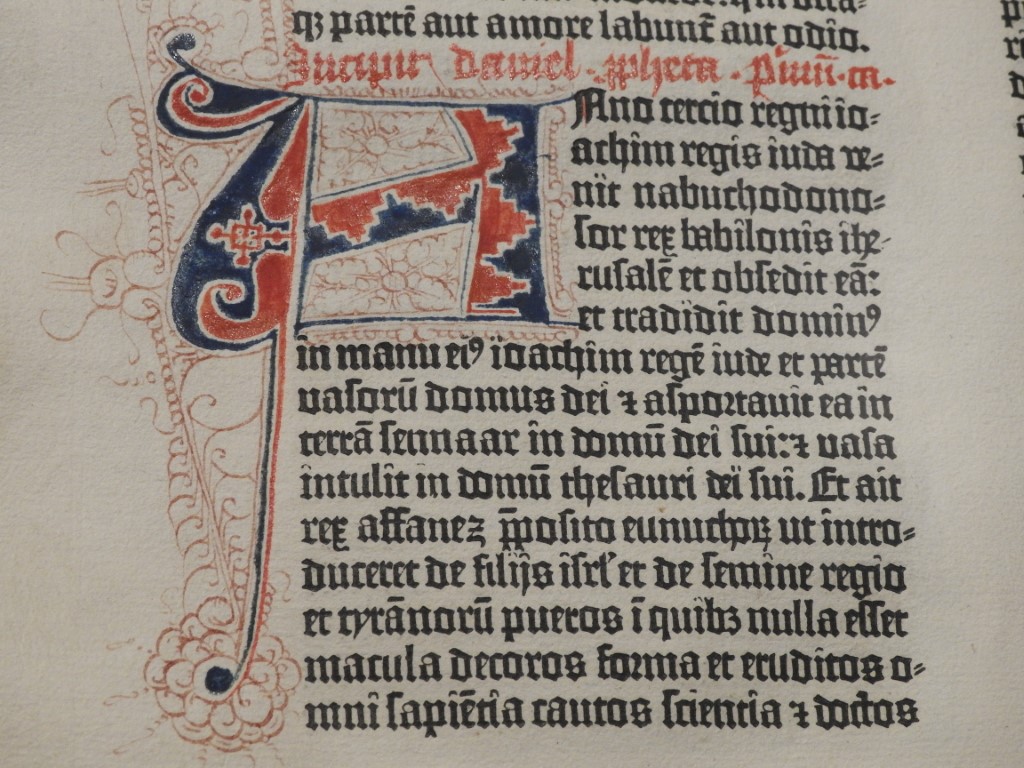 qꝫ partē aut amore labunt̄ aut odio.
Incipit daniel ꝓpheta. Primū. ca.
Anno tercio regni io-
achim regis iuda ve-
nit nabuchodono-
sor rex babilonis ihr-
rusalē et obsedit eā:
et tradidit dominꝰ
in manu eiꝰ ioachim regē iude et partē
vasorū domus dei ⁊ asportauit ea in
terrā sennaar in domū dei sui: ⁊ vasa
intulit in domū thesauri dei sui. Et ait
rex asfanez p̄posito eunuchoꝝ ut intro-
duceret de filijs isrl' et de semine regio
et tyrānorū pueros ī quibꝫ nulla esset
macula decoros forma et eruditos o-
mni sapiētia cautos scientia ⁊ doctos